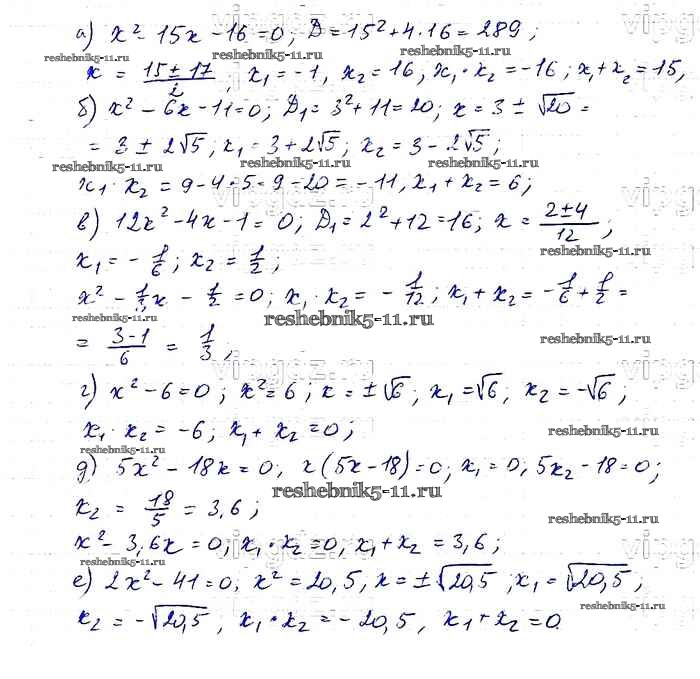 а) x² - 15x - 16 = 0; D = 15² + 4·16 = 289;
reshebnik5-11.ru reshebnik5-11.ru reshebnik5-11.ru
x = (15 ± 17)/2; x₁ = -1, x₂ = 16; x₁·x₂ = -16; x₁ + x₂ = 15,
б) x² - 6x - 11 = 0; D₁ = 3² + 11 = 20; x = 3 ± √20 =
= 3 ± 2√5; x₁ = 3 + 2√5; x₂ = 3 - 2√5;
reshebnik5-11.ru reshebnik5-11.ru reshebnik5-11.ru
x₁·x₂ = 9 - 4·5 = 9 - 20 = -11, x₁ + x₂ = 6;
в) 12x² - 4x - 1 = 0; D₁ = 2² + 12 = 16; x = (2 ± 4)/12;
reshebnik5-11.ru
x₁ = -1/6; x₂ = 1/2;
x² - 1/3x - 1/2 = 0; x₁·x₂ = -1/12; x₁ + x₂ = -1/6 + 1/2 =
reshebnik5-11.ru reshebnik5-11.ru
= (3-1)/6 = 1/3;
reshebnik5-11.ru
г) x² - 6 = 0; x² = 6; x = ±√6, x₁ = √6, x₂ = -√6;
x₁·x₂ = -6; x₁ + x₂ = 0;
reshebnik5-11.ru reshebnik5-11.ru
д) 5x² - 18x = 0, x(5x - 18) = 0; x₁ = 0, 5x₂ - 18 = 0;
reshebnik5-11.ru
x₂ = 18/5 = 3,6;
reshebnik5-11.ru
x² - 3,6x = 0; x₁·x₂ = 0, x₁ + x₂ = 3,6;
е) 2x² - 41 = 0; x² = 20,5, x = ±√20,5; x₁ = √20,5;
reshebnik5-11.ru
x₂ = -√20,5, x₁·x₂ = -20,5, x₁ + x₂ = 0